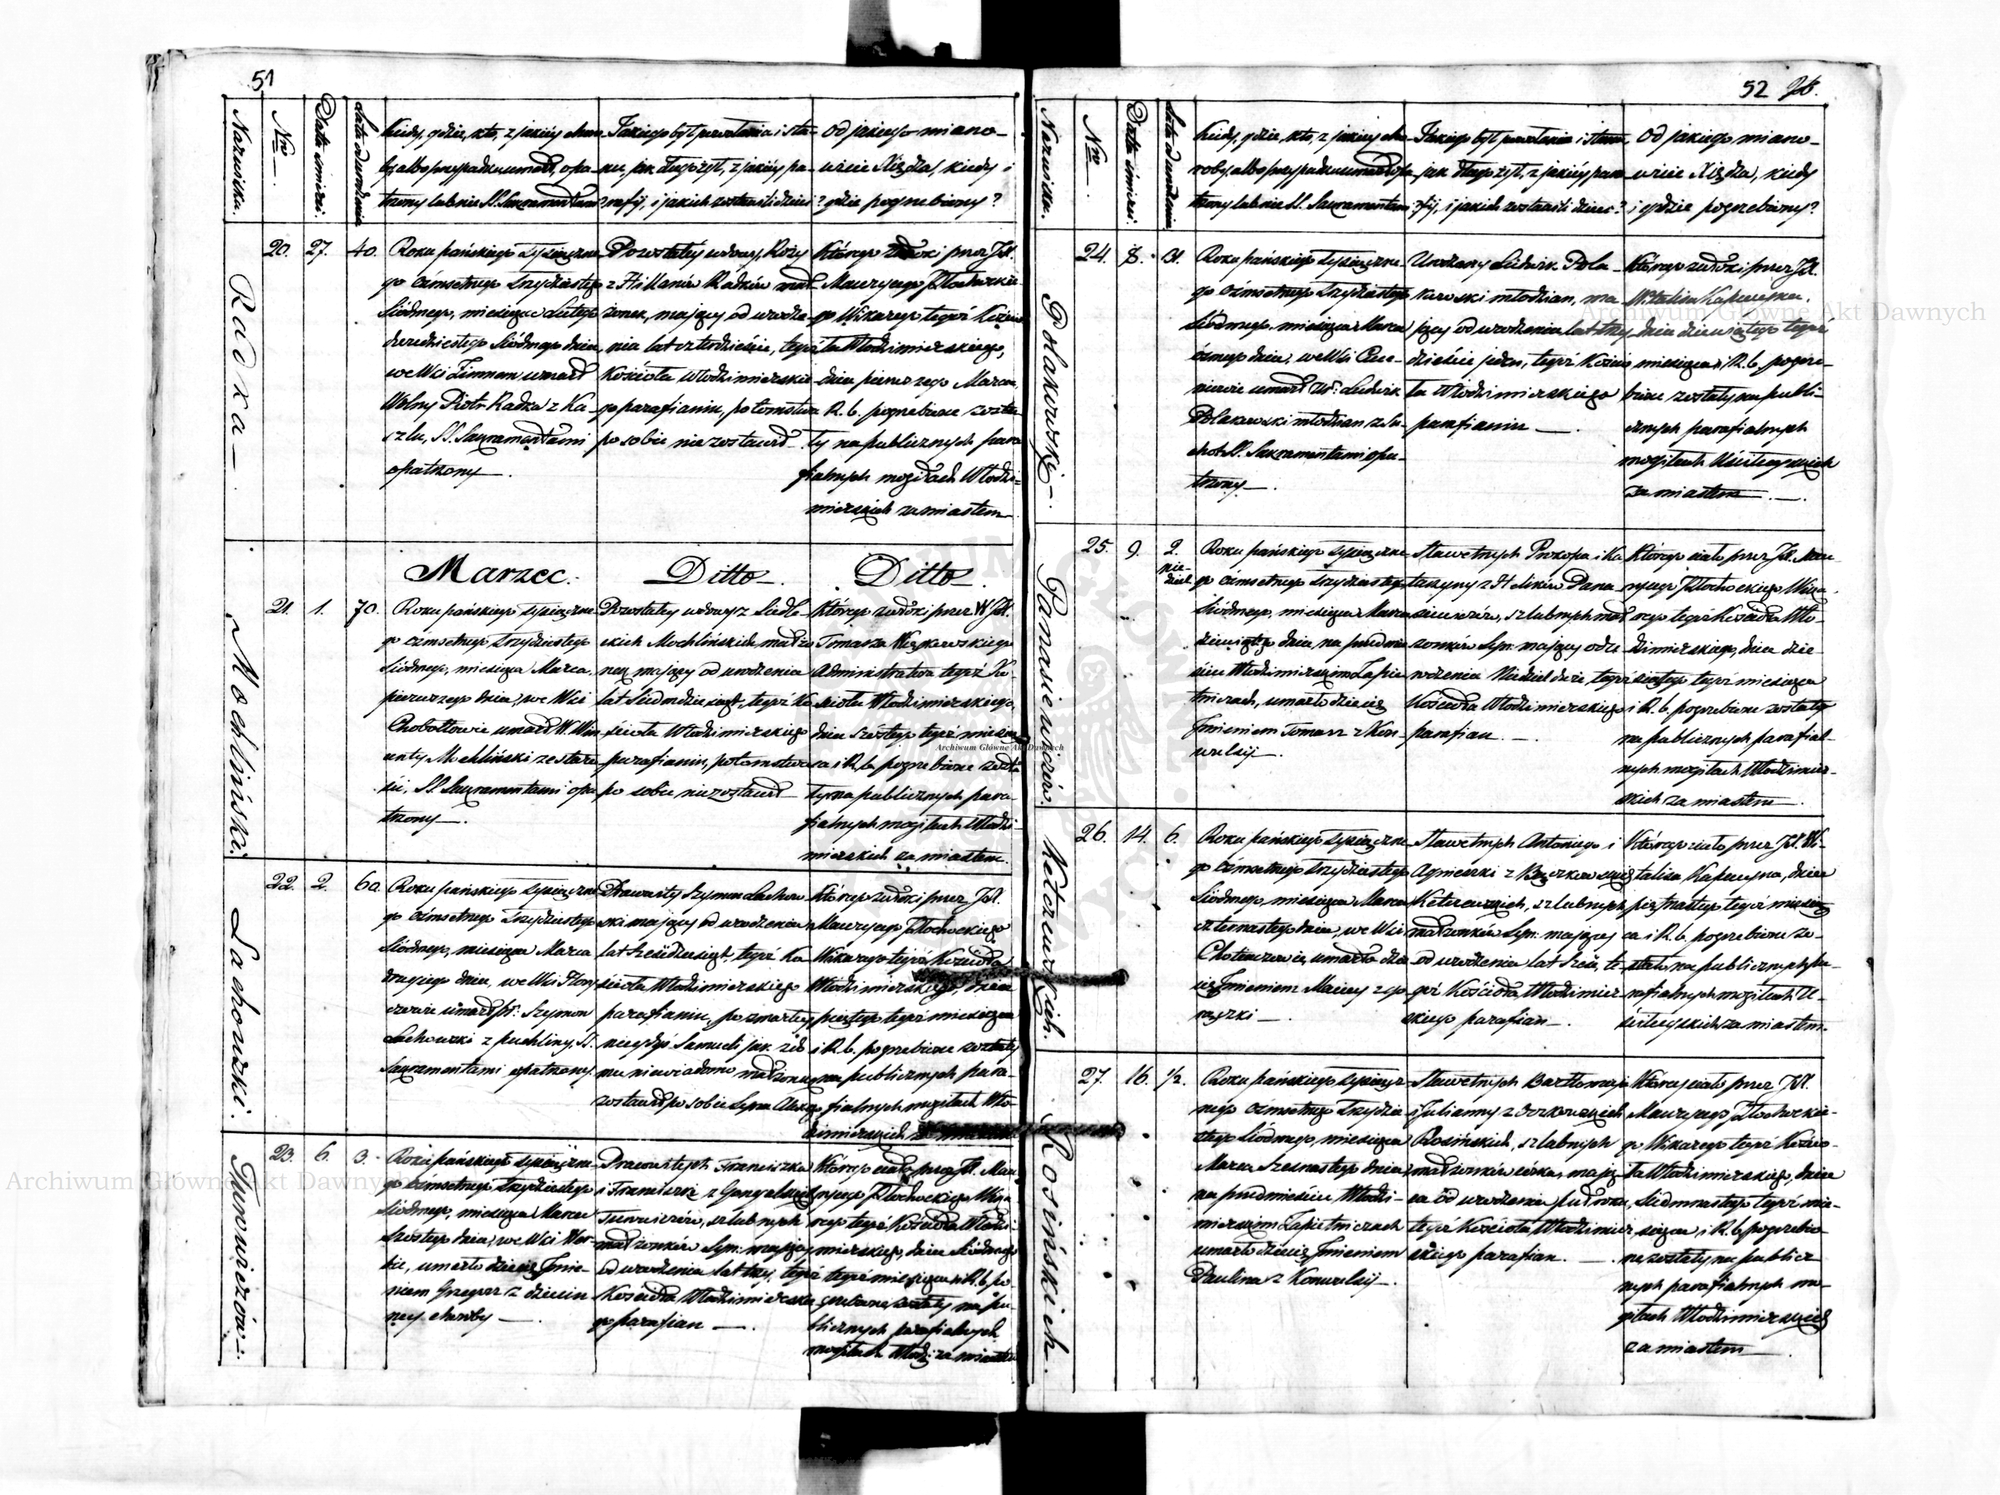 51
Nazwiska.
Nro
Data śmierci.
Lata od urodzenia
Kiedy, gdzie, kto, z jakiey choro-
by, albo przypadku umarł, opa-
trzony lub nie SS. Sakramentami
Jakiego był powołania i sta-
nu, jak długo żył, z jakiéy pa-
rafij, i jakich zostawił dzieci?
Od jakiego miano-
wicie Xiędza, kiedy i
gdzie pogrzebiony?
Radka
20. 27. 40.
Roku pańskiego tysiączne-
go ośmsetnego trzydziestego
Siódmego, miesiąca Lutego
dwudziestego Siódmego dnia,
we Wsi Zimnem umarł
Wolny Piotr Radka z Ka-
szlu, SS. Sakramentami
opatrzony.
Pozostały wdowy, Rozy
małż-
żonek, mający od urodze-
nia lat czterdzieście, tegoż
Kościoła Włodzimierskie-
go parafianin, potomstwa
po sobie nie zostawił
Którego zwłoki przez JX.
Maurycego Płochockie-
go Wikarego tegoż Kościo-
ła Włodzimierskiego,
dnia pierwszego Marca,
R. b. pogrzebione zosta-
ły na publicznych para-
fialnych mogiłach Włodzi-
mierskich za miastem
Marzec. Ditto Ditto
Mochliński.
21. 1. 70.
Roku pańskiego tysiączne-
go ośmsetnego trzydziestego
Siódmego, miesiąca Marca,
pierwszego dnia, we Wsi
Chobołtowie umarł W. Win-
centy Mochliński ze staro-
ści, SS. Sakramentami opa-
trzony.
Pozostały wdowy z Siedle-
ckich Mochlińskich małżo-
nek mający od urodzenia
lat Siedmdziesiąt, tegoż Ko-
ścioła Włodzimierskiego
parafianin, potomstwa
po sobie nie zostawił
Którego zwłoki przez WJX.
Tomasza
Administratora tegoż Ko-
ścioła Włodzimierskiego,
dnia szóstego tegoż miesią-
ca i R. b. pogrzebione zosta-
ły na publicznych para-
fialnych mogiłach Włodzi-
mierskich za miastem.
Lachowski.
22. 2. 60.
Roku pańskiego tysiączne-
go ośmsetnego trzydziestego
Siódmego, miesiąca Marca
drugiego dnia, we Wsi
umarł Szymon
Lachowski z puchliny, SS.
Sakramentami opatrzony.
Pracowity Szymon Lachow-
ski mający od urodzenia
lat sześćdziesiąt, tegoż Ko-
ścioła Włodzimierskiego
parafianin, po zmarłey
niegdyś
mu niewiadomo małżonce
zostawił po sobie Syna
Którego zwłoki przez JX.
Maurycego Płochockiego
Wikarego tegoż Kościoła
Włodzimierskiego, dnia
piątego tegoż miesiąca
i R. b. pogrzebione zostały
na publicznych para-
fialnych mogiłach Wło-
dzimierskich za miastem
23. 6. 3.
Roku pańskiego tysiączne-
go ośmsetnego trzydziestego
Siódmego, miesiąca Marca
szóstego dnia, we Wsi
umarło dziecię Imie-
niem Grzegorz z dziecin-
ney choroby
Pracowitych Franciszka
i Franciszki z
z ślubnych
małżonków Syn mający
od urodzenia lat trzy, tegoż
Kościoła Włodzimierskie-
go parafian
Którego ciało przez JX. Mau-
rycego Płochockiego Wika-
rego tegoż Kościoła Włodzi-
mierskiego, dnia Siódmego
tegoż miesiąca i R. b. po-
grzebione zostały na pu-
blicznych parafialnych
mogiłach Włodzi: za miastem
52
Nazwiska.
Nro
Data śmierci.
Lata od urodzenia
Kiedy, gdzie, kto, z jakiey cho-
roby, albo przypadku umarł, opa-
trzony lub nie SS. Sakramentami
Jakiego był powołania i stanu
jak długo żył, z jakiéy para-
fij, i jakich zostawił dzieci?
Od jakiego miano-
wicie Xiędza, kiedy
i gdzie pogrzebiony?
Polakowski
24. 8. 31.
Roku pańskiego tysiączne-
go ośmsetnego trzydziestego
Siódmego, miesiąca Marca
ósmego dnia, we Wsi
umarł Ur: Ludwik
Polakowski młodzian z su-
chot SS. Sakramentami opa-
trzony
Urodzony Ludwik Pola-
kowski młodzian, ma-
jący od urodzenia lat trzy-
dzieście jeden, tegoż Kościo-
ła Włodzimierskiego
parafianin
Którego zwłoki przez JX.
Witalisa Kapucyna,
dnia dziewiątego tegoż
miesiąca i R. b. pogrze-
bione zostały na publi-
cznych parafialnych
mogiłach Uściługskich
za miastem
Panasiewiczów
25. 9. 2. niedziel
Roku pańskiego tysiączne-
go ośmsetnego trzydziestego
Siódmego, miesiąca Marca
dziewiątego dnia, na przedmie-
ściu Włodzimierskiem
umarło dziecię
Imieniem Tomasz z Kon-
wulsij
Sławetnych Prokopa i Ka-
tarzyny z Panasiewiczów, z ślubnych mał-
żonków Syn mający od u-
rodzenia Niedziel dwie, tegoż
Kościoła Włodzimierskiego
parafian.
Którego ciało przez JX. Mau-
rycego Płochockiego Wika-
rego tegoż Kościoła Wło-
dzimierskiego, dnia dzie-
siątego tegoż miesiąca
i R. b. pogrzebione zostały
na publicznych parafial-
nych mogiłach Włodzimier-
skich za miastem
26. 14. 6.
Roku pańskiego tysiączne-
go ośmsetnego trzydziestego
Siódmego, miesiąca Marca
czternastego dnia, we Wsi
umarło dzie-
cię Imieniem Maciey z go-
rączki
Sławetnych Antoniego i
Agnieszki z
z ślubnych
małżonków Syn mający
od urodzenia lat sześć, te-
goż Kościoła Włodzimier-
skiego parafian
Którego ciało przez JX. Wi-
talisa Kapucyna, dnia
piętnastego tegoż miesią-
ca i R. b. pogrzebione zo-
stały na publicznych pa-
rafialnych mogiłach U-
ściługskich za miastem.
Rosińskich.
27. 16. 1/2.
Roku pańskiego tysiącz-
nego ośmsetnego trzydzie-
stego Siódmego, miesiąca
Marca szesnastego dnia,
na przedmieściu Włodzi-
mierskiem
umarło dziecię Imieniem
Paulina z Konwulsij
Sławetnych Bartłomieja
i Julianny z
Rosińskich, z ślubnych
małżonków córka, mają-
ca od urodzenia pół roku,
tegoż Kościoła Włodzimier-
skiego parafian.
Którey ciało przez JX.
Maurycego Płochockie-
go Wikarego tegoż Kościo-
ła Włodzimierskiego, dnia
Siedmnastego tegoż mie-
siąca i R. b. pogrzebio-
ne zostały na publicz-
nych parafialnych mo-
giłach Włodzimierskich
za miastem
Archiwum Główne Akt Dawnych